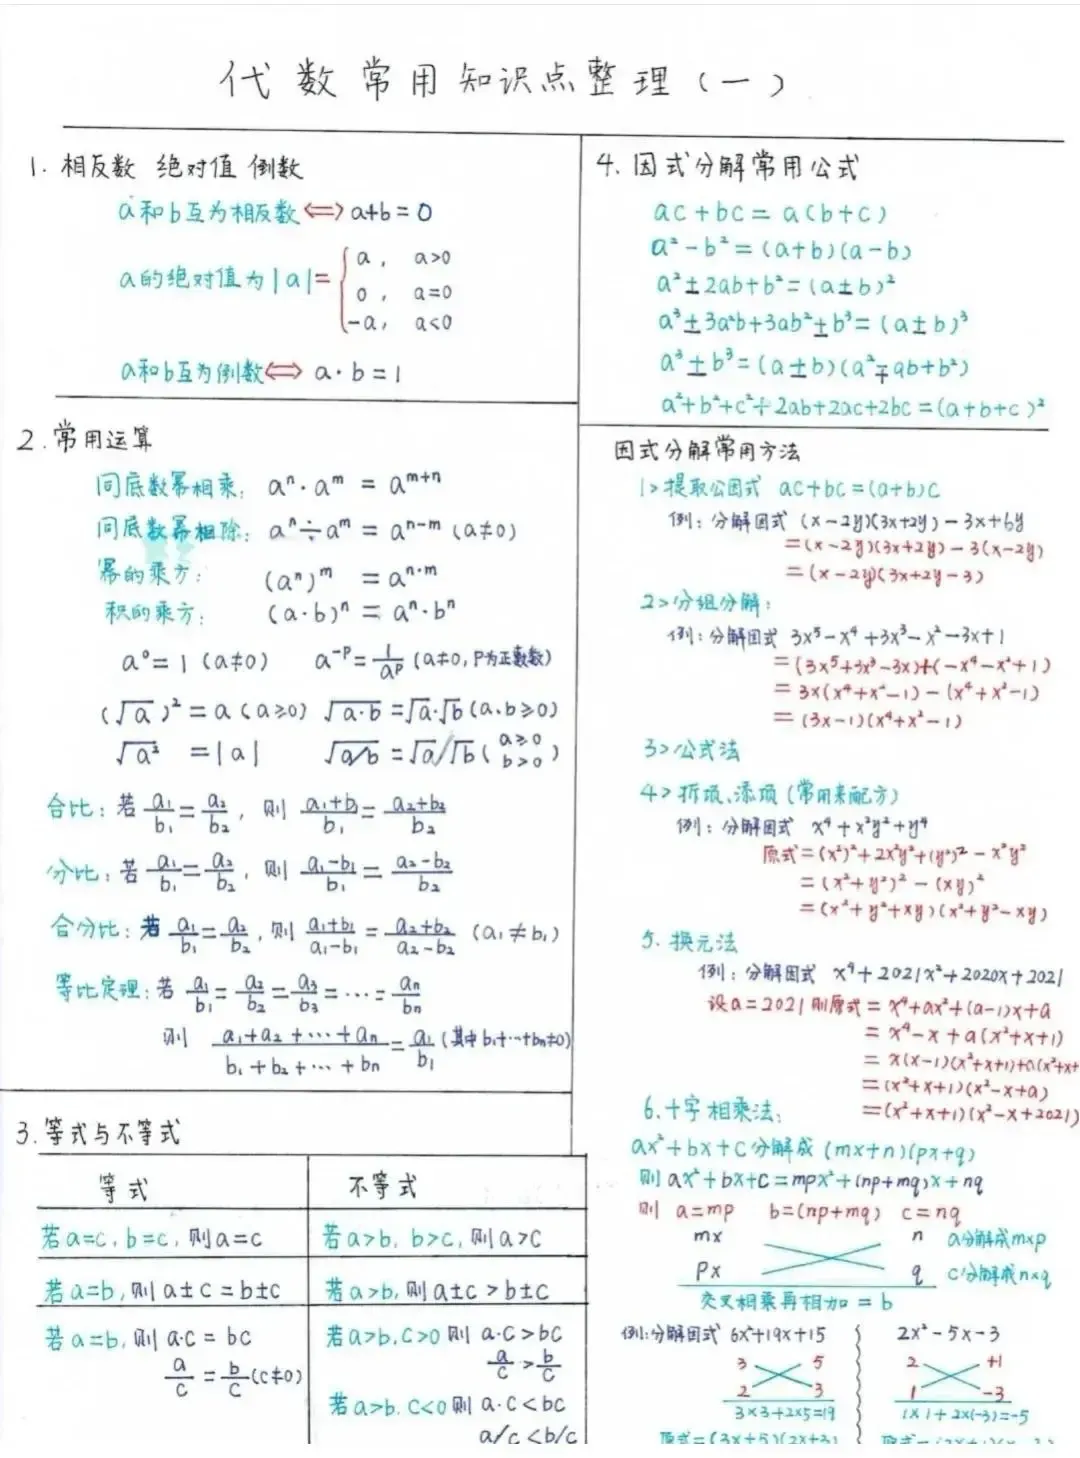 代数常用知识点整理(一)
1. 相反数 绝对值 倒数
a和b互为相反数⇔a+b=0
a的绝对值为|a|={a, a>0
0, a=0
-a, a<0
a和b互为倒数⇔a·b=1
2.常用运算
同底数幂相乘: aⁿ·aᵐ = aᵐ⁺ⁿ
同底数幂相除: aⁿ÷aᵐ = aⁿ⁻ᵐ (a≠0)
幂的乘方: (aⁿ)ᵐ = aⁿ·ᵐ
积的乘方: (a·b)ⁿ = aⁿ·bⁿ
a⁰=1 (a≠0) a⁻ᵖ=1/aᵖ (a≠0,P为正整数)
(√a)²=a(a≥0) √a·b=√a·√b(a、b≥0)
√a² =|a| √a/b=√a/√b(a≥0 b>0)
合比: 若 a₁/b₁=a₂/b₂, 则 a₁+b₁/b₁=a₂+b₂/b₂
分比: 若 a₁/b₁=a₂/b₂, 则 a₁-b₁/b₁=a₂-b₂/b₂
合分比: 若 a₁/b₁=a₂/b₂, 则 a₁+b₁/a₁-b₁=a₂+b₂/a₂-b₂ (a₁≠b₁)
等比定理: 若 a₁/b₁=a₂/b₂=a₃/b₃=…=aₙ/bₙ
则 a₁+a₂+…+aₙ/b₁+b₂+…+bₙ=a₁/b₁(其中b₁+…+bₙ≠0)
3.等式与不等式
等式 不等式
若a=c,b=c,则a=c 若a>b,b>c,则a>c
若a=b,则a±c=b±c 若a>b,则a±c>b±c
若a=b,则a·c=bc 若a>b,c>0则 a·c>bc
a/c=b/c(c≠0) a/c>b/c
若a>b.c<0则 a·c<bc
a/c<b/c
4、因式分解常用公式
ac+bc=a(b+c)
a²-b²=(a+b)(a-b)
a²±2ab+b²=(a±b)²
a³±3a²b+3ab²±b³=(a±b)³
a³±b³=(a±b)(a²∓ab+b²)
a²+b²+c²+2ab+2ac+2bc=(a+b+c)²
因式分解常用方法
1>提取公因式 ac+bc=(a+b)c
例: 分解因式 (x-2y)(3x+2y)-3x+6y
=(x-2y)(3x+2y)-3(x-2y)
=(x-2y)(3x+2y-3)
2>分组分解:
例: 分解因式 3x⁵-x⁴+3x³-x²-3x+1
=(3x⁵+3x³-3x)+(-x⁴-x²+1)
=3x(x⁴+x²-1)-(x⁴+x²-1)
=(3x-1)(x⁴+x²-1)
3>公式法
4>拆项、添项(常用来配方)
例: 分解因式 x⁴+x²y²+y⁴
原式=(x²)²+2x²y²+(y²)²-x²y²
=(x²+y²)²-(xy)²
=(x²+y²+xy)(x²+y²-xy)
5.换元法
例: 分解因式 x⁴+2021x²+2020x+2021
设a=2021则原式=x⁴+ax²+(a-1)x+a
=x⁴-x+a(x²+x+1)
=x(x-1)(x²+x+1)+a(x²+x+
=(x²+x+1)(x²-x+a)
=(x²+x+1)(x²-x+2021)
6.十字相乘法:
ax²+bx+c分解成(mx+n)(px+q)
则ax²+bx+c=mpx²+(np+mq)x+nq
则 a=mp b=(np+mq) c=nq
mx n a分解成m×p
px q c分解成n×q
交叉相乘再相加=b
例:分解因式 6x²+19x+15 2x²-5x-3
3 5 2 +1
2 3 1 -3
3×3+2×5=19 1×1+2×(-3)=-5
原式=(3x+5)(2x+3)